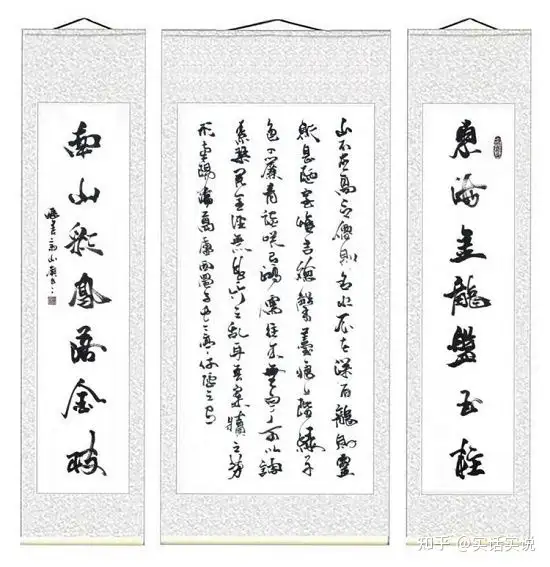 東海金龍盤玉柱
山不在高有僊則名水不在深有龍則靈
斯是陋室惟吾德馨苔痕上階綠草
色入簾青談笑有鴻儒往來無白丁可以調
素琴閱金經無絲竹之亂耳無案牘之勞
形南陽諸葛廬西蜀子雲亭何陋之有
南山彩鳳落金枝
知乎 @实话实说